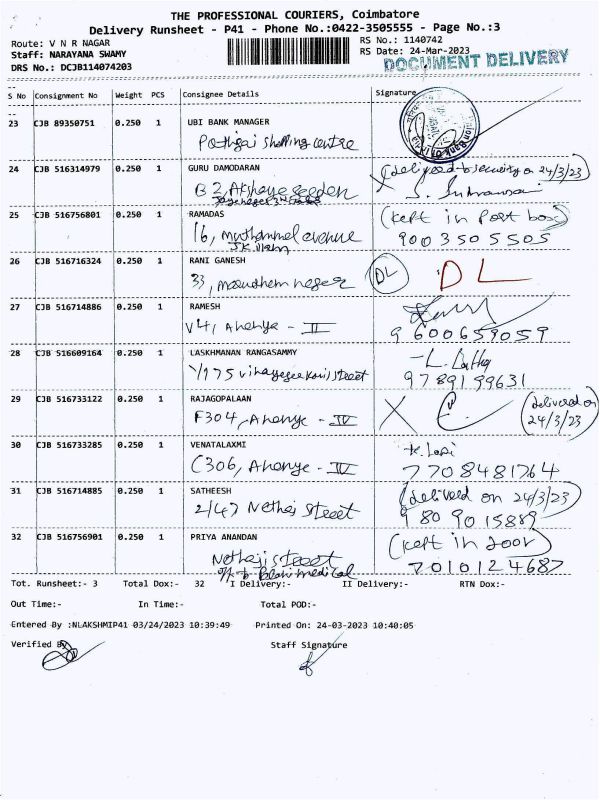 THE PROFESSIONAL COURIERS, Coimbatore
Delivery Runsheet - P41 - Phone No.:0422-3505555 - Page No.:3
Route: V N R NAGAR
RS No.: 1140742
Staff: NARAYANA SWAMY
RS Date: 24-Mar-2023
DRS No.: DCJB114074203
DOCUMENT DELIVERY
S No Consignment No Weight PCS Consignee Details Signature
23 CJB 89350751 0.250 1 UBI BANK MANAGER
Pothgai Shopping centre
24 CJB 516314979 0.250 1 GURU DAMODARAN
(delivered to security on 24/3/23)
B 2, Akshaya garden
25 CJB 516756801 0.250 1 RAMADAS
(kept in Post box)
16, muthammal avenue
9003505505
26 CJB 516716324 0.250 1 RANI GANESH
DL DL
33, nager
27 CJB 516714886 0.250 1 RAMESH
V41, Ananya - II
9600659059
28 CJB 516609164 0.250 1 LASKHMANAN RANGASAMMY
L. Latha
1/175 street
9789199631
29 CJB 516733122 0.250 1 RAJAGOPALAAN
F304, Ananya - IV
X (delivered on 24/3/23)
30 CJB 516733285 0.250 1 VENATALAXMI
C306, Ananya - IV
7708481764
31 CJB 516714885 0.250 1 SATHEESH
(delivered on 24/3/23)
2/47 Nethaji Street
9809015889
32 CJB 516756901 0.250 1 PRIYA ANANDAN
(kept in door)
Nethaji street
medical
7010124687
Tot. Runsheet:- 3 Total Dox:- 32 I Delivery:- II Delivery:- RTN Dox:-
Out Time:- In Time:- Total POD:-
Entered By :NLAKSHMIP41 03/24/2023 10:39:49 Printed On: 24-03-2023 10:40:05
Verified By Staff Signature